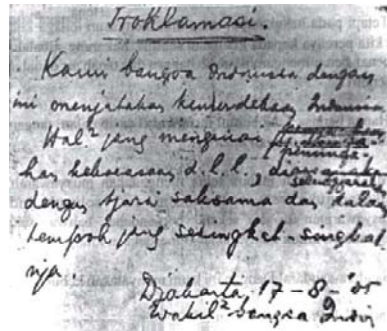 Proklamasi.
Kami bangsa Indonesia dengan
ini menjatakan kemerdekaan Indonesia
Hal² jang mengenai
peminda-
han kekoeasaan d.l.l., diselenggarakan
dengan tjara saksama dan dalam
tempoh jang sesingkat-singkat
nja.
Djakarta, 17-8-'05
Wakil² bangsa Indon